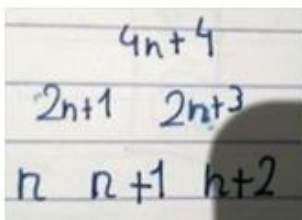 4n+4
2n+1 2n+3
n n+1 n+2